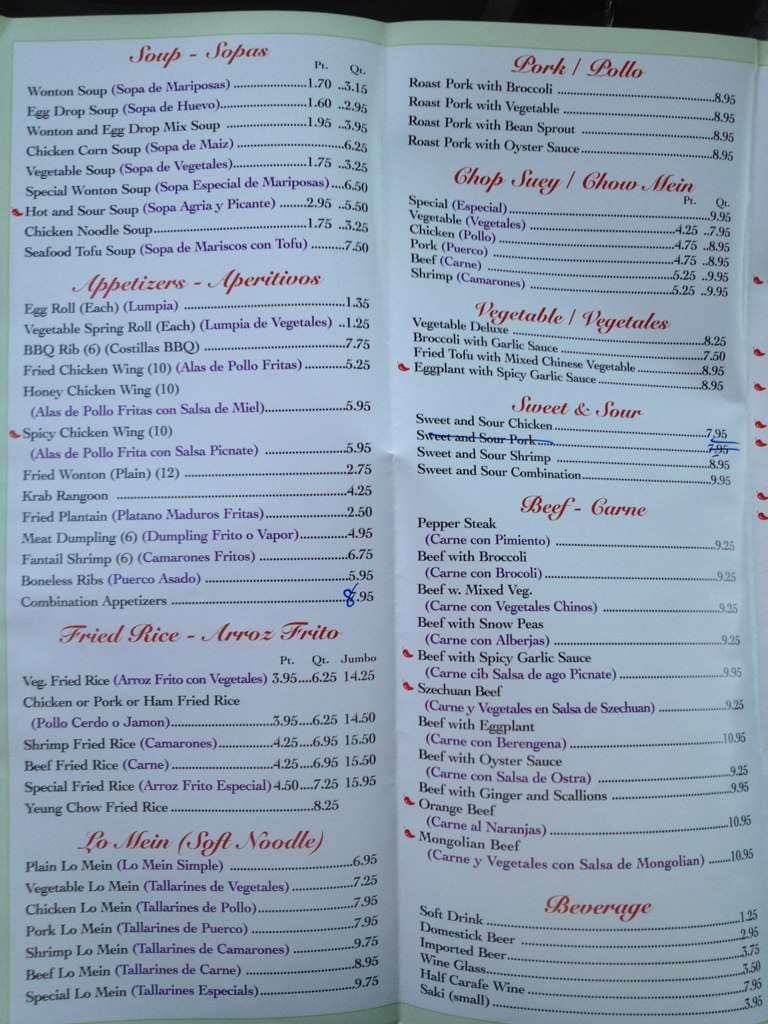 Soup - Sopas
Pt. Qt.
Wonton Soup (Sopa de Mariposas) ......1.70 ..3.15
Egg Drop Soup (Sopa de Huevo)......1.60 ..2.95
Wonton and Egg Drop Mix Soup ......1.95 ..3.95
Chicken Corn Soup (Sopa de Maiz) ......6.25
Vegetable Soup (Sopa de Vegetales)......1.75 ..3.25
Special Wonton Soup (Sopa Especial de Mariposas)....6.50
Hot and Sour Soup (Sopa Agria y Picante) ......2.95 ..5.50
Chicken Noodle Soup......1.75 ..3.25
Seafood Tofu Soup (Sopa de Mariscos con Tofu) ......7.50
Appetizers - Aperitivos
Egg Roll (Each) (Lumpia) ......1.35
Vegetable Spring Roll (Each) (Lumpia de Vegetales) ..1.25
BBQ Rib (6) (Costillas BBQ) ......7.75
Fried Chicken Wing (10) (Alas de Pollo Fritas)......5.25
Honey Chicken Wing (10)
(Alas de Pollo Fritas con Salsa de Miel)......5.95
Spicy Chicken Wing (10)
(Alas de Pollo Frita con Salsa Picnate) ......5.95
Fried Wonton (Plain) (12) ......2.75
Krab Rangoon ......4.25
Fried Plantain (Platano Maduros Fritas)......2.50
Meat Dumpling (6) (Dumpling Frito o Vapor)......4.95
Fantail Shrimp (6) (Camarones Fritos) ......6.75
Boneless Ribs (Puerco Asado) ......5.95
Combination Appetizers ......8.95
Fried Rice - Arroz Frito
Pt. Qt. Jumbo
Veg. Fried Rice (Arroz Frito con Vegetales) 3.95....6.25 14.25
Chicken or Pork or Ham Fried Rice
(Pollo Cerdo o Jamon)......3.95...6.25 14.50
Shrimp Fried Rice (Camarones)......4.25...6.95 15.50
Beef Fried Rice (Carne) ......4.25...6.95 15.50
Special Fried Rice (Arroz Frito Especial) 4.50....7.25 15.95
Yeung Chow Fried Rice ......8.25
Lo Mein (Soft Noodle)
Plain Lo Mein (Lo Mein Simple) ......6.95
Vegetable Lo Mein (Tallarines de Vegetales)......7.25
Chicken Lo Mein (Tallarines de Pollo)......7.95
Pork Lo Mein (Tallarines de Puerco) ......7.95
Shrimp Lo Mein (Tallarines de Camarones)......9.75
Beef Lo Mein (Tallarines de Carne) ......8.95
Special Lo Mein (Tallarines Especials)......9.75
Pork / Pollo
Roast Pork with Broccoli ......8.95
Roast Pork with Vegetable ......8.95
Roast Pork with Bean Sprout ......8.95
Roast Pork with Oyster Sauce......8.95
Chop Suey / Chow Mein
Pt. Qt.
Special (Especial)......9.95
Vegetable (Vegetales) ......4.25 ..7.95
Chicken (Pollo) ......4.75 ..8.95
Pork (Puerco) ......4.75 ..8.95
Beef (Carne) ......5.25 ..9.95
Shrimp (Camarones) ......5.25 ..9.95
Vegetable / Vegetales
Vegetable Deluxe ......8.25
Broccoli with Garlic Sauce ......7.50
Fried Tofu with Mixed Chinese Vegetable ......8.95
Eggplant with Spicy Garlic Sauce ......8.95
Sweet & Sour
Sweet and Sour Chicken......7.95
Sweet and Sour Pork ......7.95
Sweet and Sour Shrimp ......8.95
Sweet and Sour Combination......9.95
Beef - Carne
Pepper Steak
(Carne con Pimiento) ......9.25
Beef with Broccoli
(Carne con Brocoli)......9.25
Beef w. Mixed Veg.
(Carne con Vegetales Chinos) ......9.25
Beef with Snow Peas
(Carne con Alberjas) ......9.25
Beef with Spicy Garlic Sauce
(Carne cib Salsa de ago Picnate) ......9.95
Szechuan Beef
(Carne y Vegetales en Salsa de Szechuan) ......9.25
Beef with Eggplant
(Carne con Berengena) ......10.95
Beef with Oyster Sauce
(Carne con Salsa de Ostra) ......9.25
Beef with Ginger and Scallions ......9.95
Orange Beef
(Carne al Naranjas)......10.95
Mongolian Beef
(Carne y Vegetales con Salsa de Mongolian) ......10.95
Beverage
Soft Drink ......1.25
Domestick Beer ......2.95
Imported Beer......3.75
Wine Glass......3.50
Half Carafe Wine ......7.95
Saki (small) ......3.95